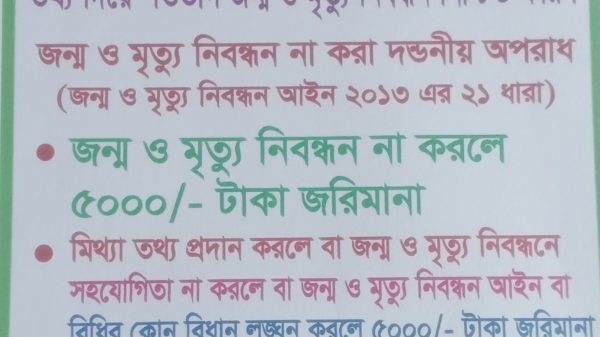 জন্ম ও মৃত্যু নিবন্ধন না করা দন্ডনীয় অপরাধ
(জন্ম ও মৃত্যু নিবন্ধন আইন ২০১৩ এর ২১ ধারা)
• জন্ম ও মৃত্যু নিবন্ধন না করলে
৫০০০/- টাকা জরিমানা
• মিথ্যা তথ্য প্রদান করলে বা জন্ম ও মৃত্যু নিবন্ধনে
সহযোগিতা না করলে বা জন্ম ও মৃত্যু নিবন্ধন আইন বা
বিধির কোন বিধান লঙ্ঘন করলে ৫০০০/- টাকা জরিমানা